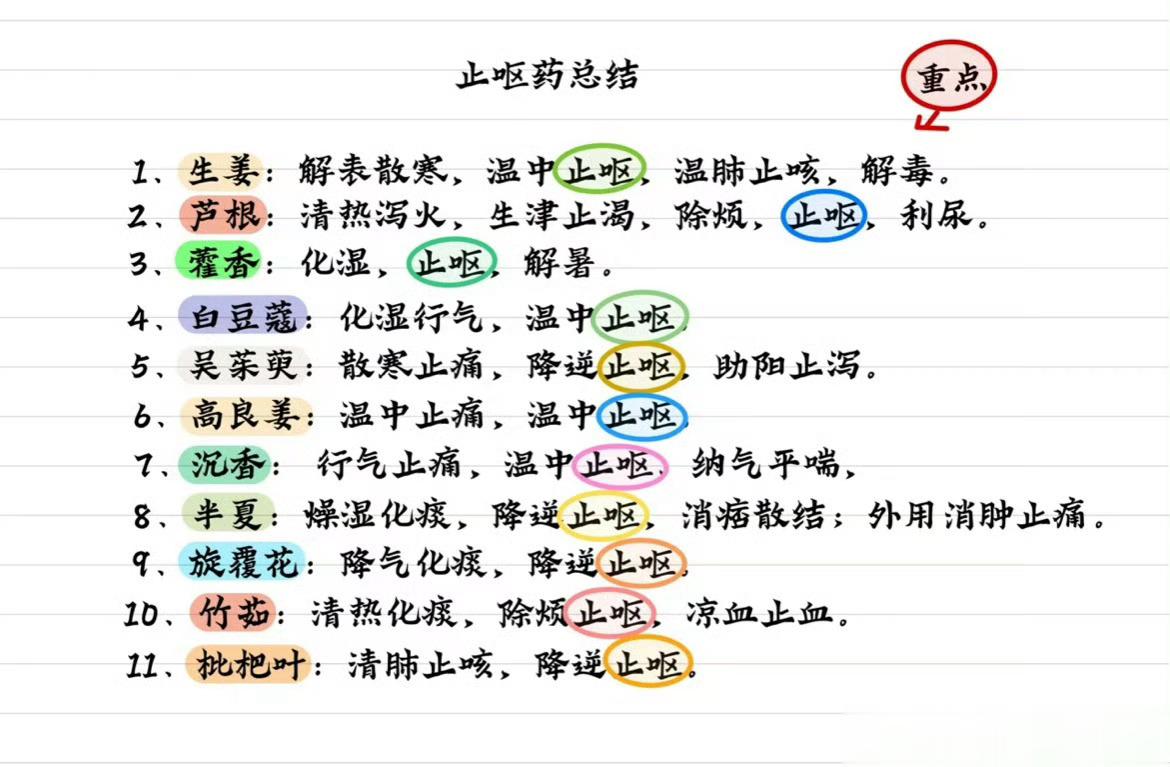 止呕药总结
重点
1、生姜：解表散寒，温中止呕，温肺止咳，解毒。
2、芦根：清热泻火，生津止渴，除烦，止呕，利尿。
3、藿香：化湿，止呕，解暑。
4、白豆蔻：化湿行气，温中止呕。
5、吴茱萸：散寒止痛，降逆止呕，助阳止泻。
6、高良姜：温中止痛，温中止呕。
7、沉香：行气止痛，温中止呕，纳气平喘，
8、半夏：燥湿化痰，降逆止呕，消痞散结；外用消肿止痛。
9、旋覆花：降气化痰，降逆止呕。
10、竹茹：清热化痰，除烦止呕，凉血止血。
11、枇杷叶：清肺止咳，降逆止呕。